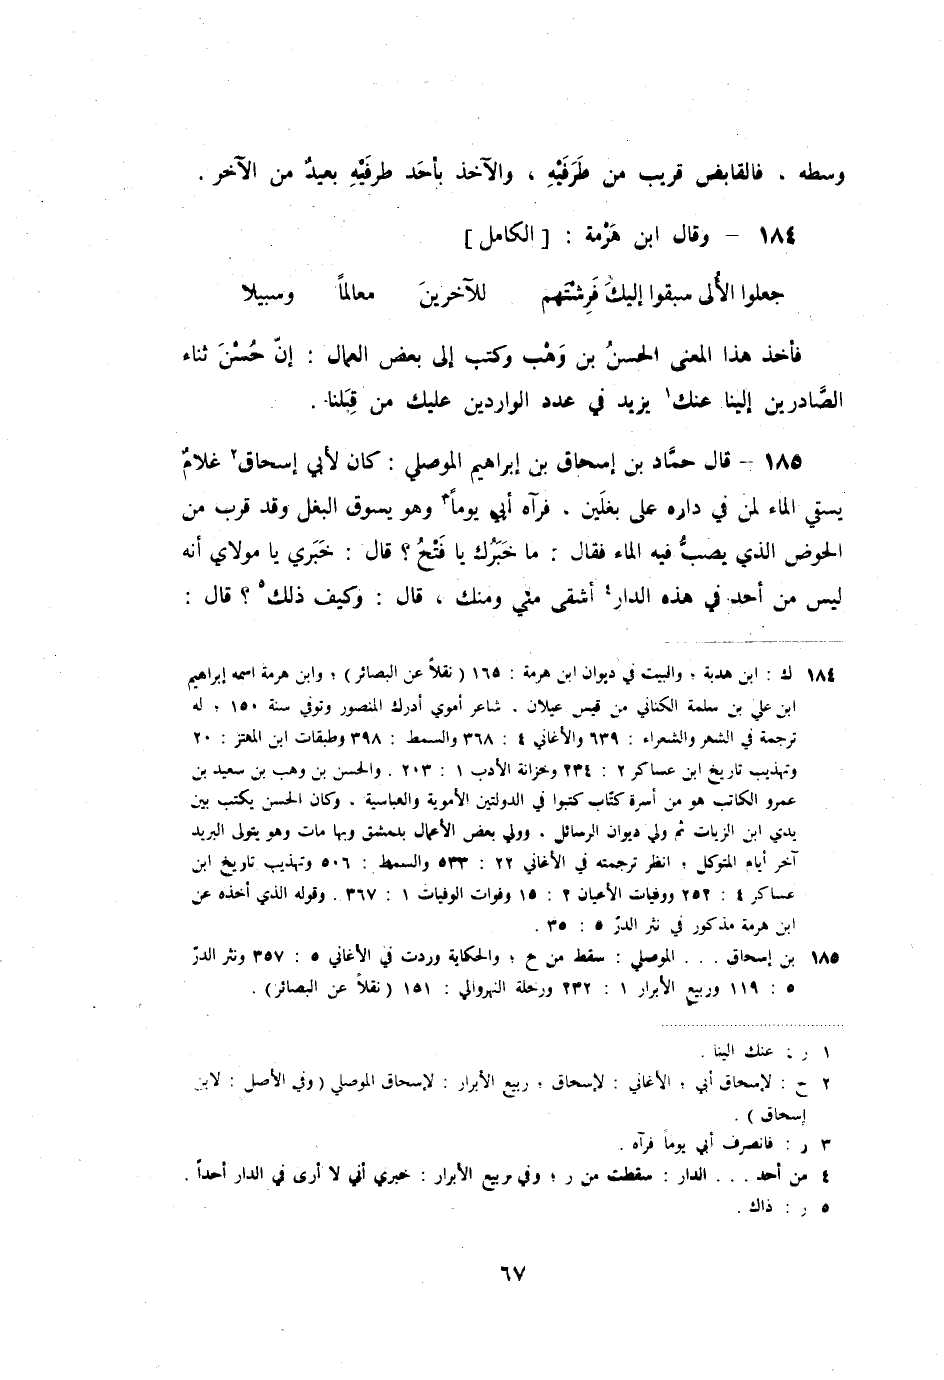 وسطه . فالقابض قريب من طَرَفَيْهِ ، والآخذ بأحَد طرفَيْهِ بعيدٌ من الآخر .
١٨٤ – وقال ابن هَرْمة : [ الكامل ]
جعلوا الأُلى سبقوا إليكَ فَرِشْتَهم للآخرينَ معالماً وسبيلا
فأخذ هذا المعنى الحسنُ بن وَهْب وكتب إلى بعض العمال : إنّ حُسْنَ ثناء
الصَّادرين إلينا عنك١ يزيد في عدد الواردين عليك من قِبَلنا .
١٨٥ – قال حمَّاد بن إسحاق بن إبراهيم الموصلي : كان لأبي إسحاق٢ غلامٌ
يستي الماء لمن في داره على بغلَين . فرآه أبي يوماً٣ وهو يسوق البغل وقد قرب من
الحوض الذي يصبُّ فيه الماء فقال : ما خَبَرُك يا فَتْحُ ؟ قال : خَبَري يا مولاي أنه
ليس من أحد في هذه الدار٤ أشقى منّي ومنك ، قال : وكيف ذلك٥ ؟ قال :
١٨٤ ك : ابن هدبة ؛ والبيت في ديوان ابن هرمة : ١٦٥ ( نقلاً عن البصائر ) ؛ وابن هرمة اسمه إبراهيم
ابن علي بن سلمة الكناني من قيس عيلان . شاعر أموي أدرك المنصور وتوفي سنة ١٥٠ ؛ له
ترجمة في الشعر والشعراء : ٦٣٩ والأغاني ٤ : ٣٦٨ والسمط : ٣٩٨ وطبقات ابن المعتز : ٢٠
وتهذيب تاريخ ابن عساكر ٢ : ٢٣٤ وخزانة الأدب ١ : ٢٠٣ . والحسن بن وهب بن سعيد بن
عمرو الكاتب هو من أسرة كتّاب كتبوا في الدولتين الأموية والعباسية . وكان الحسن يكتب بين
يدي ابن الزيات ثم ولي ديوان الرسائل . وولي بعض الأعمال بدمشق وبها مات وهو يتولى البريد
آخر أيام المتوكل ؛ انظر ترجمته في الأغاني ٢٢ : ٥٣٣ والسمط : ٥٠٦ وتهذيب تاريخ ابن
عساكر ٤ : ٢٥٢ ووفيات الأعيان ٢ : ١٥ وفوات الوفيات ١ : ٣٦٧ . وقوله الذي أخذه عن
ابن هرمة مذكور في نثر الدرّ ٥ : ٣٥ .
١٨٥ بن إسحاق . . . الموصلي : سقط من ح ؛ والحكاية وردت في الأغاني ٥ : ٣٥٧ ونثر الدرّ
٥ : ١١٩ وربيع الأبرار ١ : ٢٣٢ ورحلة النهروالي : ١٥١ ( نقلاً عن البصائر ) .
١ ر : عنك الينا .
٢ ح : لإسحاق أبي ؛ الأغاني : لإسحاق ؛ ربيع الأبرار : لإسحاق الموصلي ( وفي الأصل : لابن
إسحاق ) .
٣ ر : فانصرف أبي يوماً فرآه .
٤ من أحد . . . الدار : سقطت من ر ؛ وفي ربيع الأبرار : خبري أني لا أرى في الدار أحداً .
٥ ر : ذاك .
٦٧